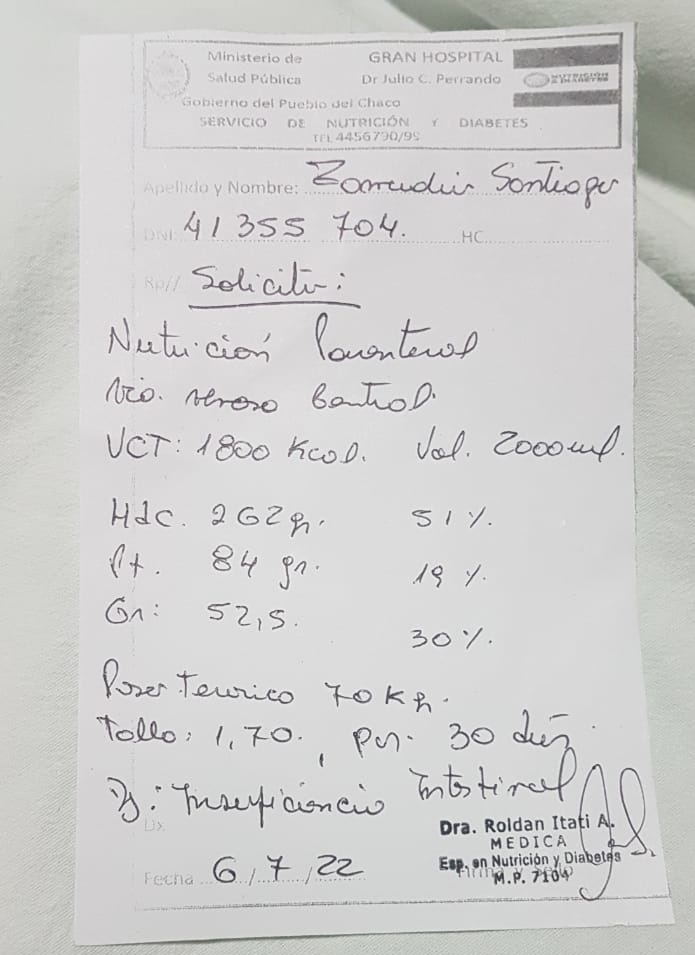 Ministerio de Salud Pública
GRAN HOSPITAL Dr Julio C. Perrando
NUTRICIÓN & DIABETES
Gobierno del Pueblo del Chaco
SERVICIO DE NUTRICIÓN Y DIABETES
TEL 4456790/99
Apellido y Nombre: Santiago
DNI: 41355704. HC
Rp// Solicito:
Nutrición Parenteral
venoso Central.
VCT: 1800 Kcal. Vol. 2000 ml.
Hdc. 262 gr. 51 %.
Pt. 84 gr. 19 %.
Gr: 52,5. 30 %.
Peso Teorico 70 Kg.
Talla: 1,70., por 30 días
D: Insuficiencia Intestinal
Dx.
Dra. Roldan Itati A.
MEDICA
Esp. en Nutrición y Diabetes
Firma y Sello
M.P. 7104
Fecha 6/7/22